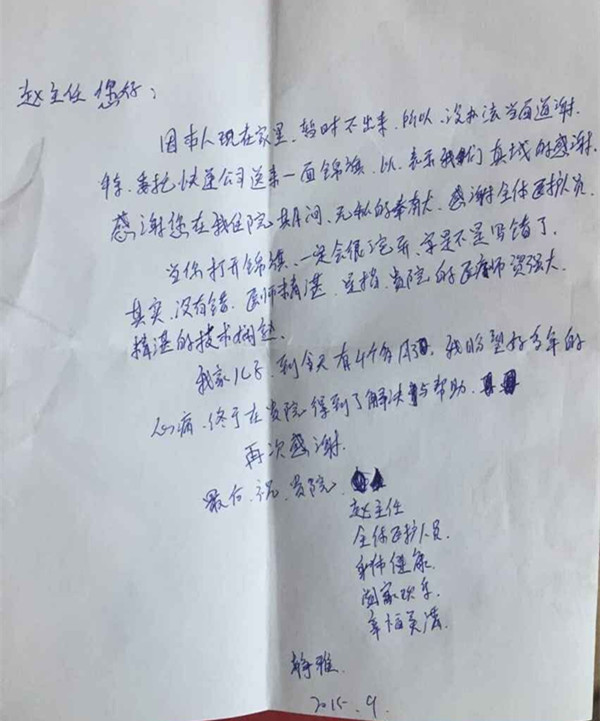 赵主任 您好：
因本人现在家里、暂时不出来、所以、没办法当面道谢.
委托快递公司送来一面锦旗、以、表示我们真诚的感谢.
感谢您在我住院其间、无私的奉献、感谢全体医护人员.
当你打开锦旗、一定会很诧异、字是不是写错了.
其实、没有错、医师精湛、是指、贵院的医师资强大.
精湛的技术
我家儿子、到今天有4个多月了、我盼望好多年的
心病、终于在贵院得到了解决与帮助、
再次感谢.
最后、祝、贵院、
赵主任
全体医护人员.
身体健康.
阖家欢乐.
幸福美满.
静雅.
2015.9